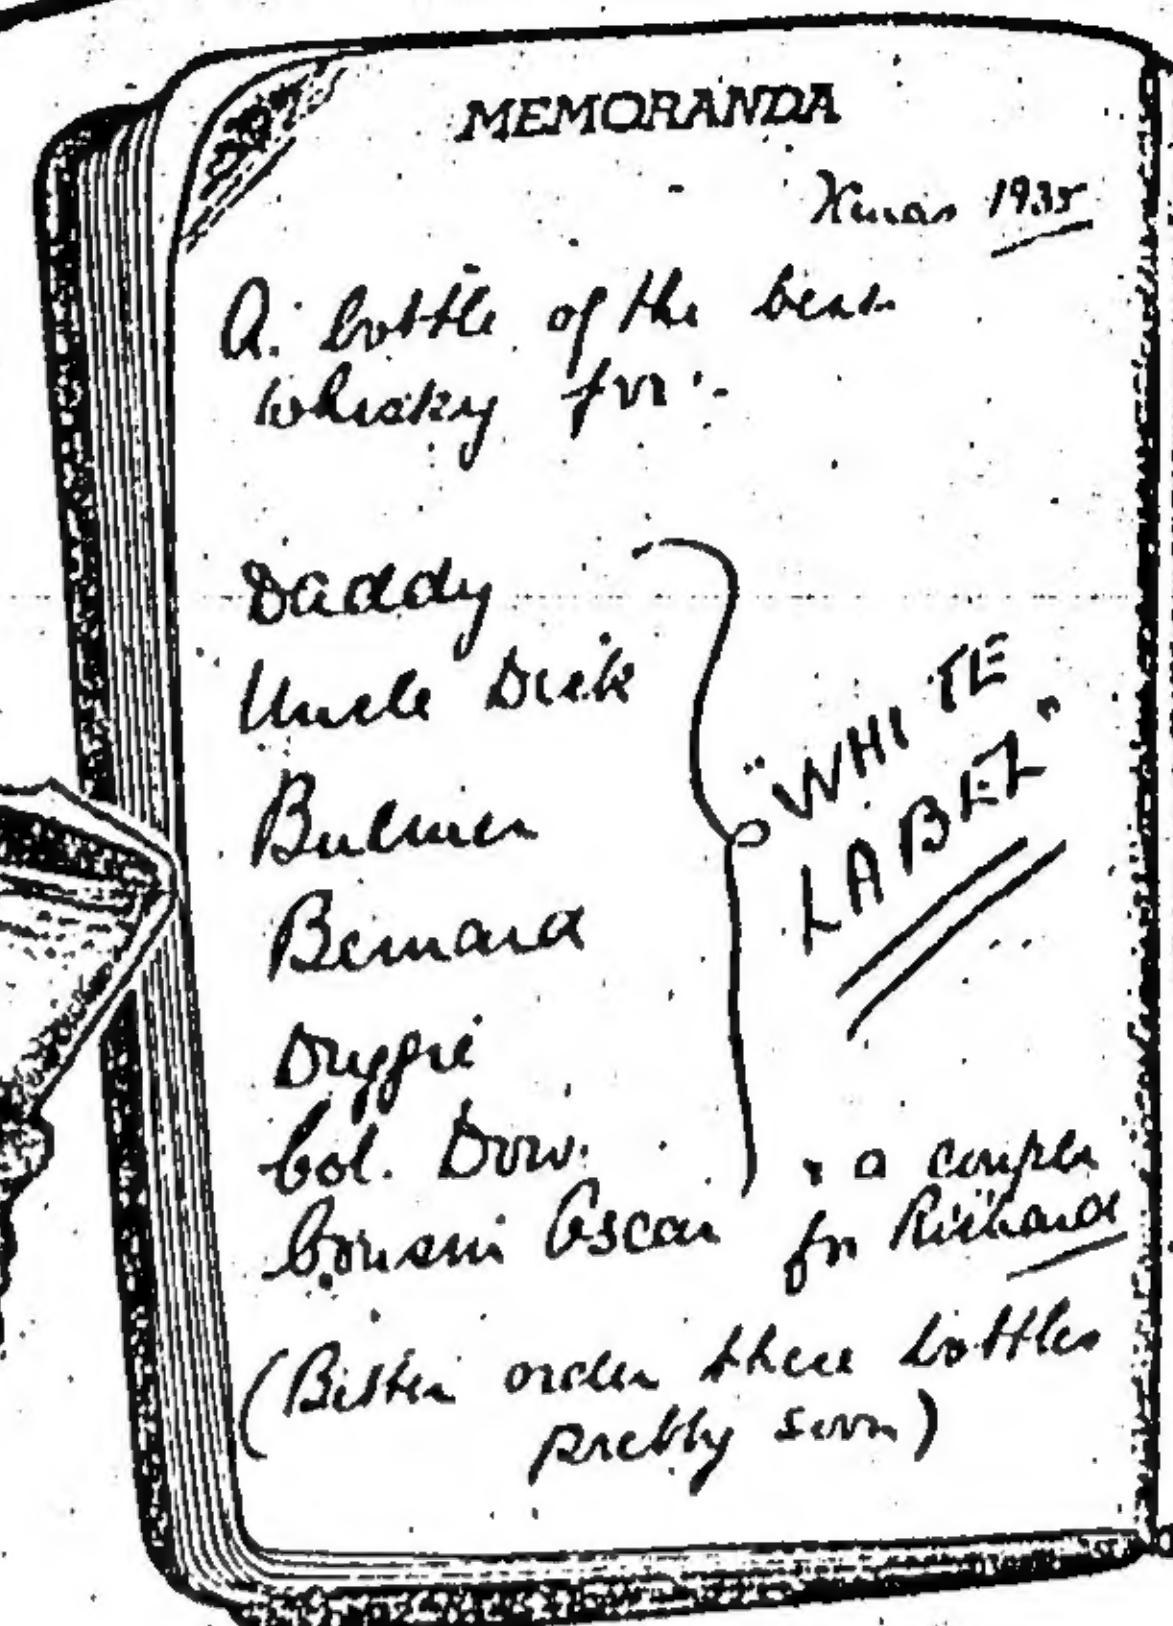 MEMORANDA
Xmas 1935
A bottle of the best
whisky for :-
Daddy
Uncle Dick
Bulmer
Bernard
Duggie
Col. Dow.
Cousin Oscar
"WHITE
LABEL"
& a couple
for Richard
(Better order these bottles
pretty soon)